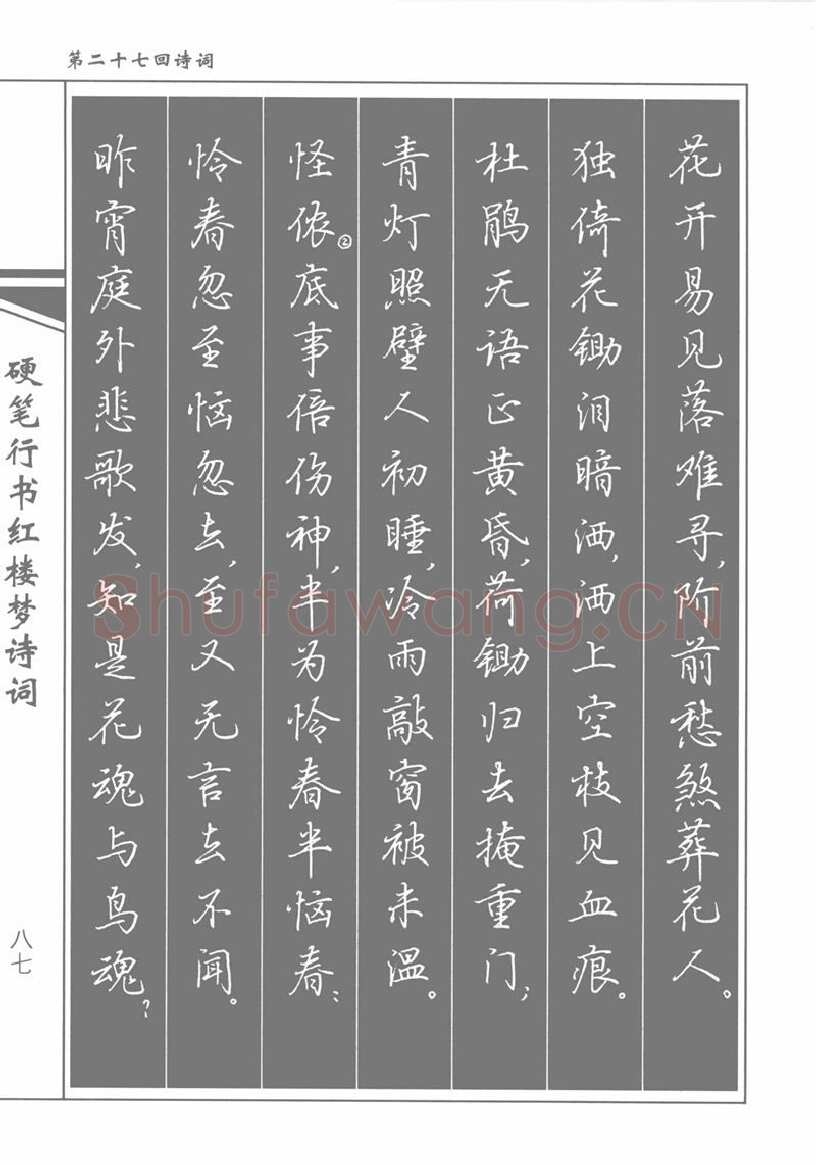 第二十七回诗词
花开易见落难寻,阶前愁煞葬花人。
独倚花锄泪暗洒,洒上空枝见血痕。
杜鹃无语正黄昏,荷锄归去掩重门;
青灯照壁人初睡,冷雨敲窗被未温。
怪侬②底事倍伤神,半为怜春半恼春:
怜春忽至恼忽去,至又无言去不闻。
昨宵庭外悲歌发,知是花魂与鸟魂?
硬笔行书红楼梦诗词
八七
Shufawang.CN